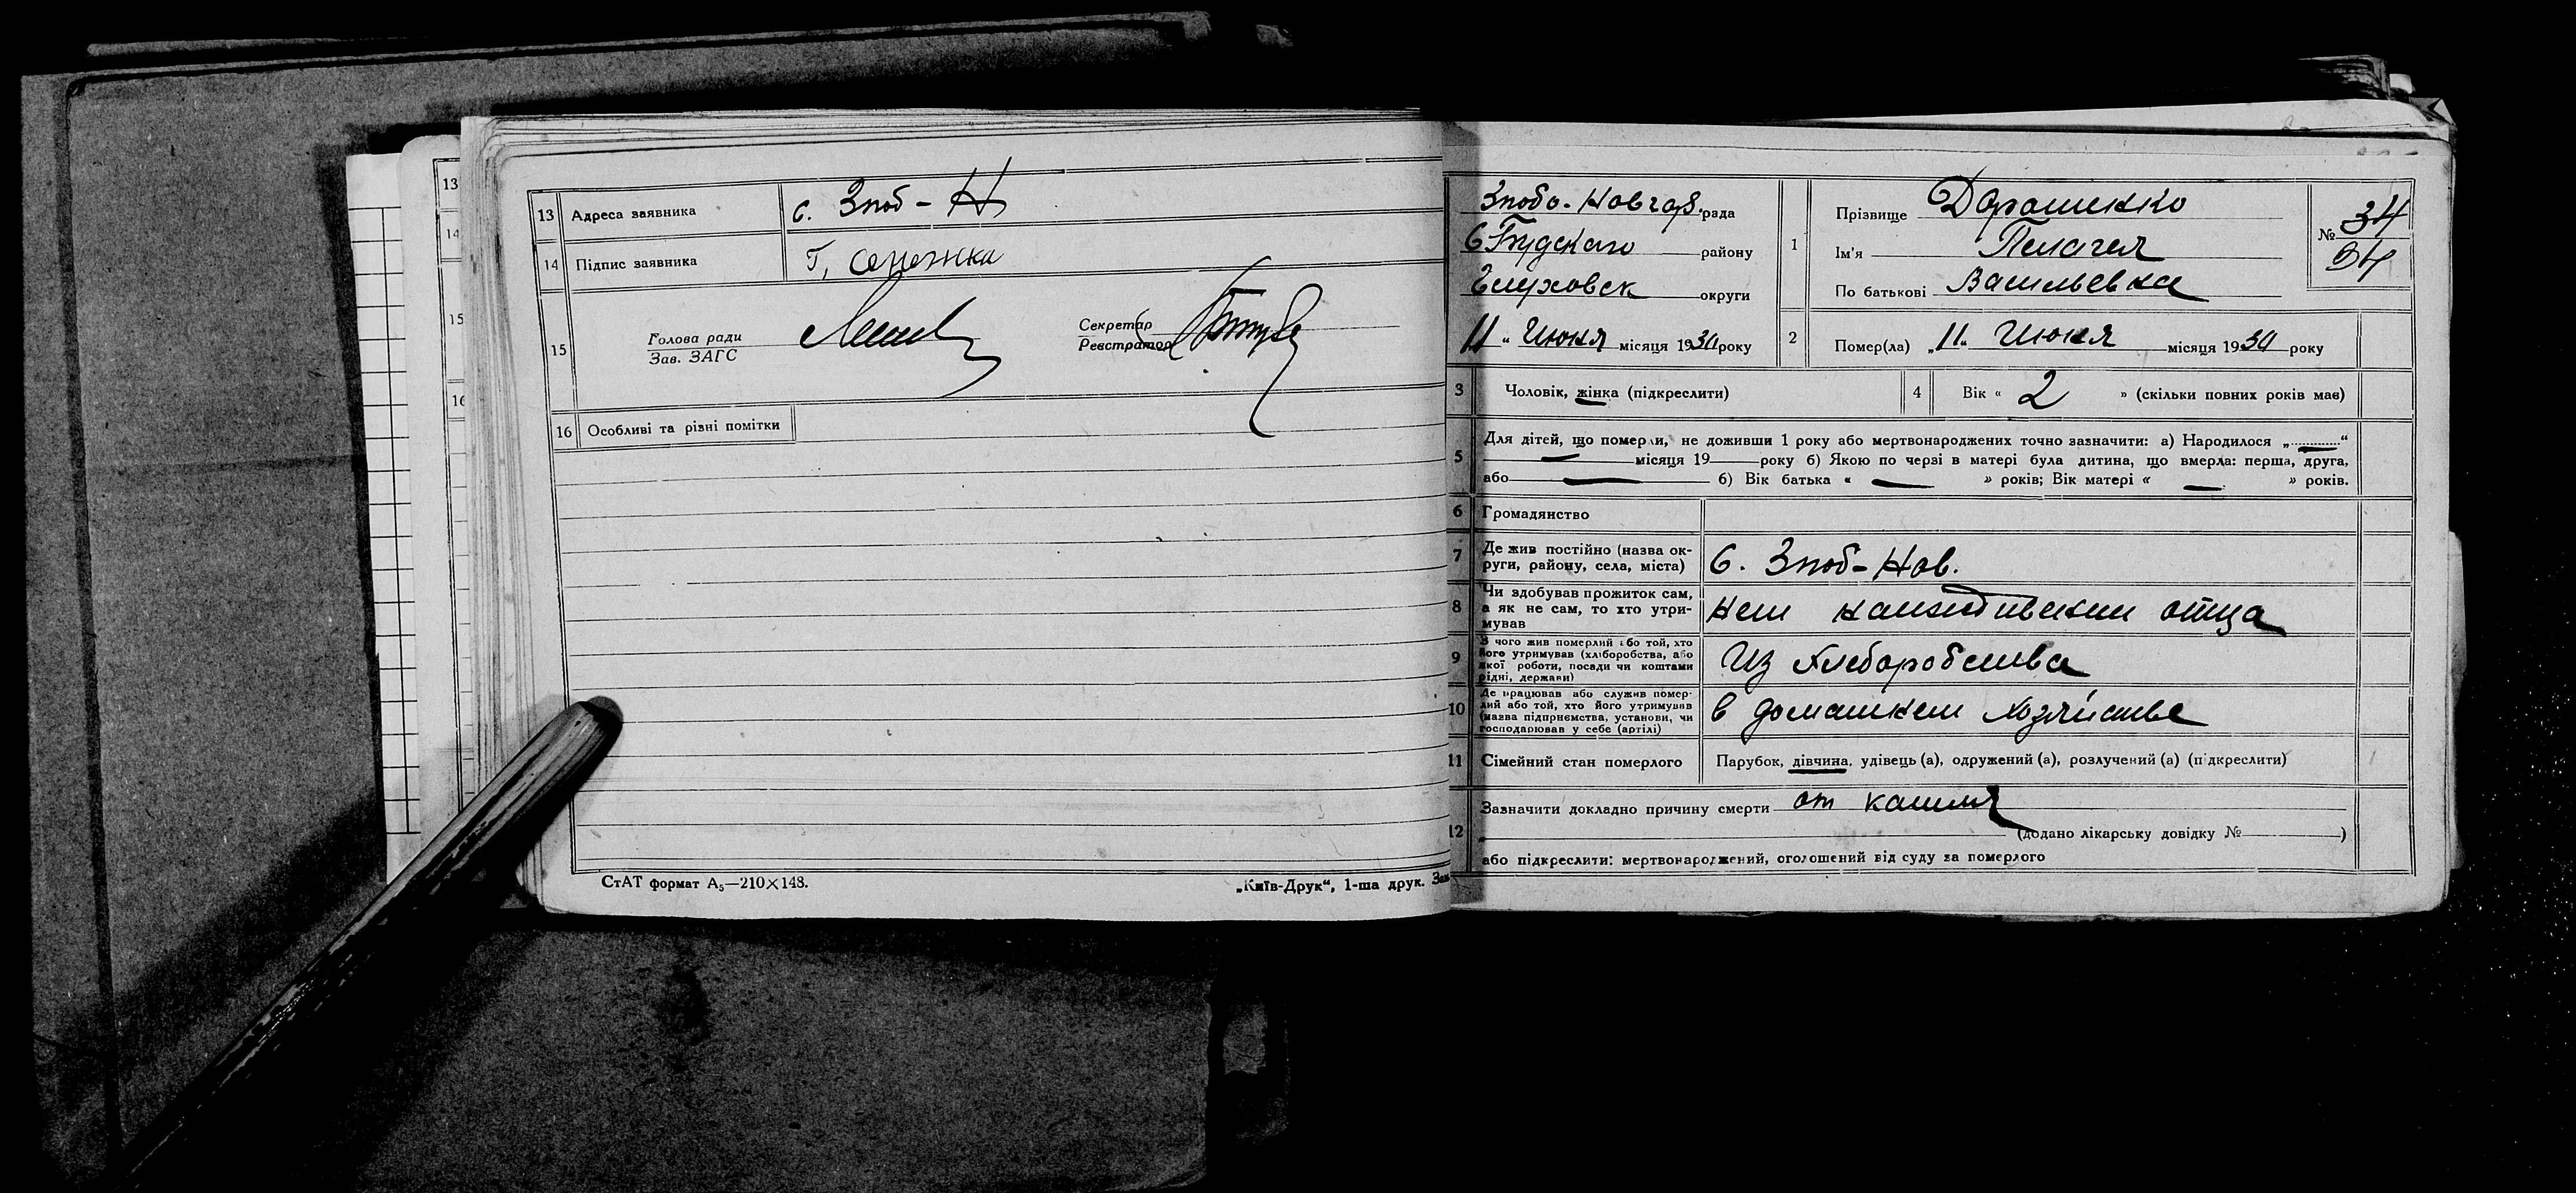 13
14
15
16
13 Адреса заявника с. Зноб - Н
14 Підпис заявника Г.
15 Голова ради
Зав. ЗАГС
Секретар
Реєстратор
16 Особливі та різні помітки
СтАТ формат А₅—210×148.
„Київ-Друк“, 1-ша друк. Зам
Знобо-Новгор. рада
С Будского району
Глуховск округи
11 “ Июня місяця 1930 року
1 Прізвище Дорошенко
Ім'я Пелагея
По батькові Васильевна
№ 34
34
2 Помер(ла) „11“ Июня місяця 1930 року
3 Чоловік, жінка (підкреслити)
4 Вік « 2 » (скільки повних років має)
5 Для дітей, що померли, не доживши 1 року або мертвонароджених точно зазначити: а) Народилося „..........“
— місяця 19 року б) Якою по черзі в матері була дитина, що вмерла: перша, друга,
або — б) Вік батька « — » років; Вік матері « — » років.
6 Громадянство
7 Де жив постійно (назва ок-
руги, району, села, міста) С. Зноб-Нов.
8 Чи здобував прожиток сам,
а як не сам, то хто утри-
мував отца
9 З чого жив померлий або той, хто
його утримував (хліборобства, або
якої роботи, посади чи коштами
рідні, держави) Из хлеборобства
10 Де працював або служив помер-
лий або той, хто його утримував
(назва підприємства, установи, чи
господарював у себе (артілі) в домашнем хозяйстве
11 Сімейний стан померлого Парубок, дівчина, удівець (а), одружений (а), розлучений (а) (підкреслити)
12 Зазначити докладно причину смерти от кашля
(додано лікарську довідку № )
або підкреслити: мертвонароджений, оголошений від суду за померлого